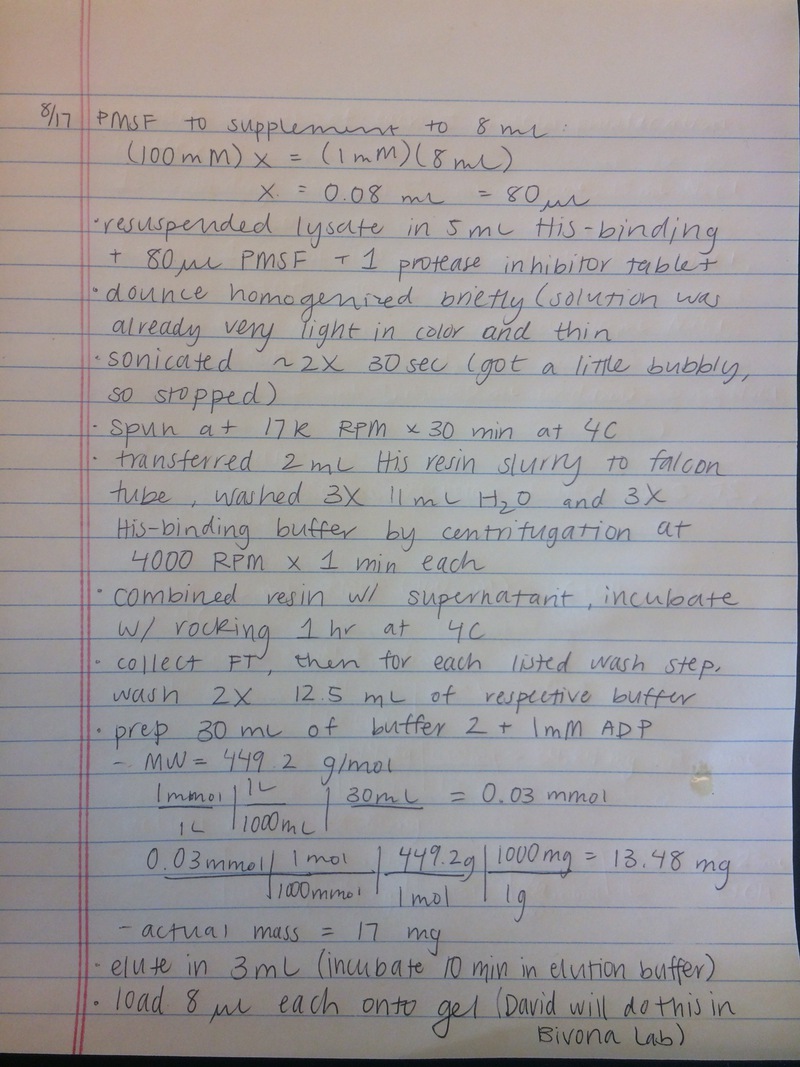 8/17 PMSF to supplement to 8 mL:
(100mM) x = (1mM)(8mL)
x = 0.08 mL = 80 µL
· resuspended lysate in 5 mL His-binding
+ 80 µL PMSF + 1 protease inhibitor tablet
· dounce homogenized briefly (solution was
already very light in color and thin
· sonicated ~2X 30 sec (got a little bubbly,
so stopped)
· spun at 17k RPM x 30 min at 4C
· transferred 2 mL His resin slurry to falcon
tube, washed 3X 11 mL H₂O and 3X
His-binding buffer by centrifugation at
4000 RPM x 1 min each
· combined resin w/ supernatant, incubate
w/ rocking 1 hr at 4C
· collect FT, then for each listed wash step,
wash 2X 12.5 mL of respective buffer
· prep 30 mL of buffer 2 + 1mM ADP
- MW = 449.2 g/mol
1mmol | 1L | 30mL = 0.03 mmol
1L | 1000mL |
0.03mmol | 1 mol | 449.2g | 1000mg = 13.48 mg
| 1000mmol | 1mol | 1g
- actual mass = 17 mg
· elute in 3mL (incubate 10 min in elution buffer)
· load 8 µL each onto gel (David will do this in
Bivona Lab)